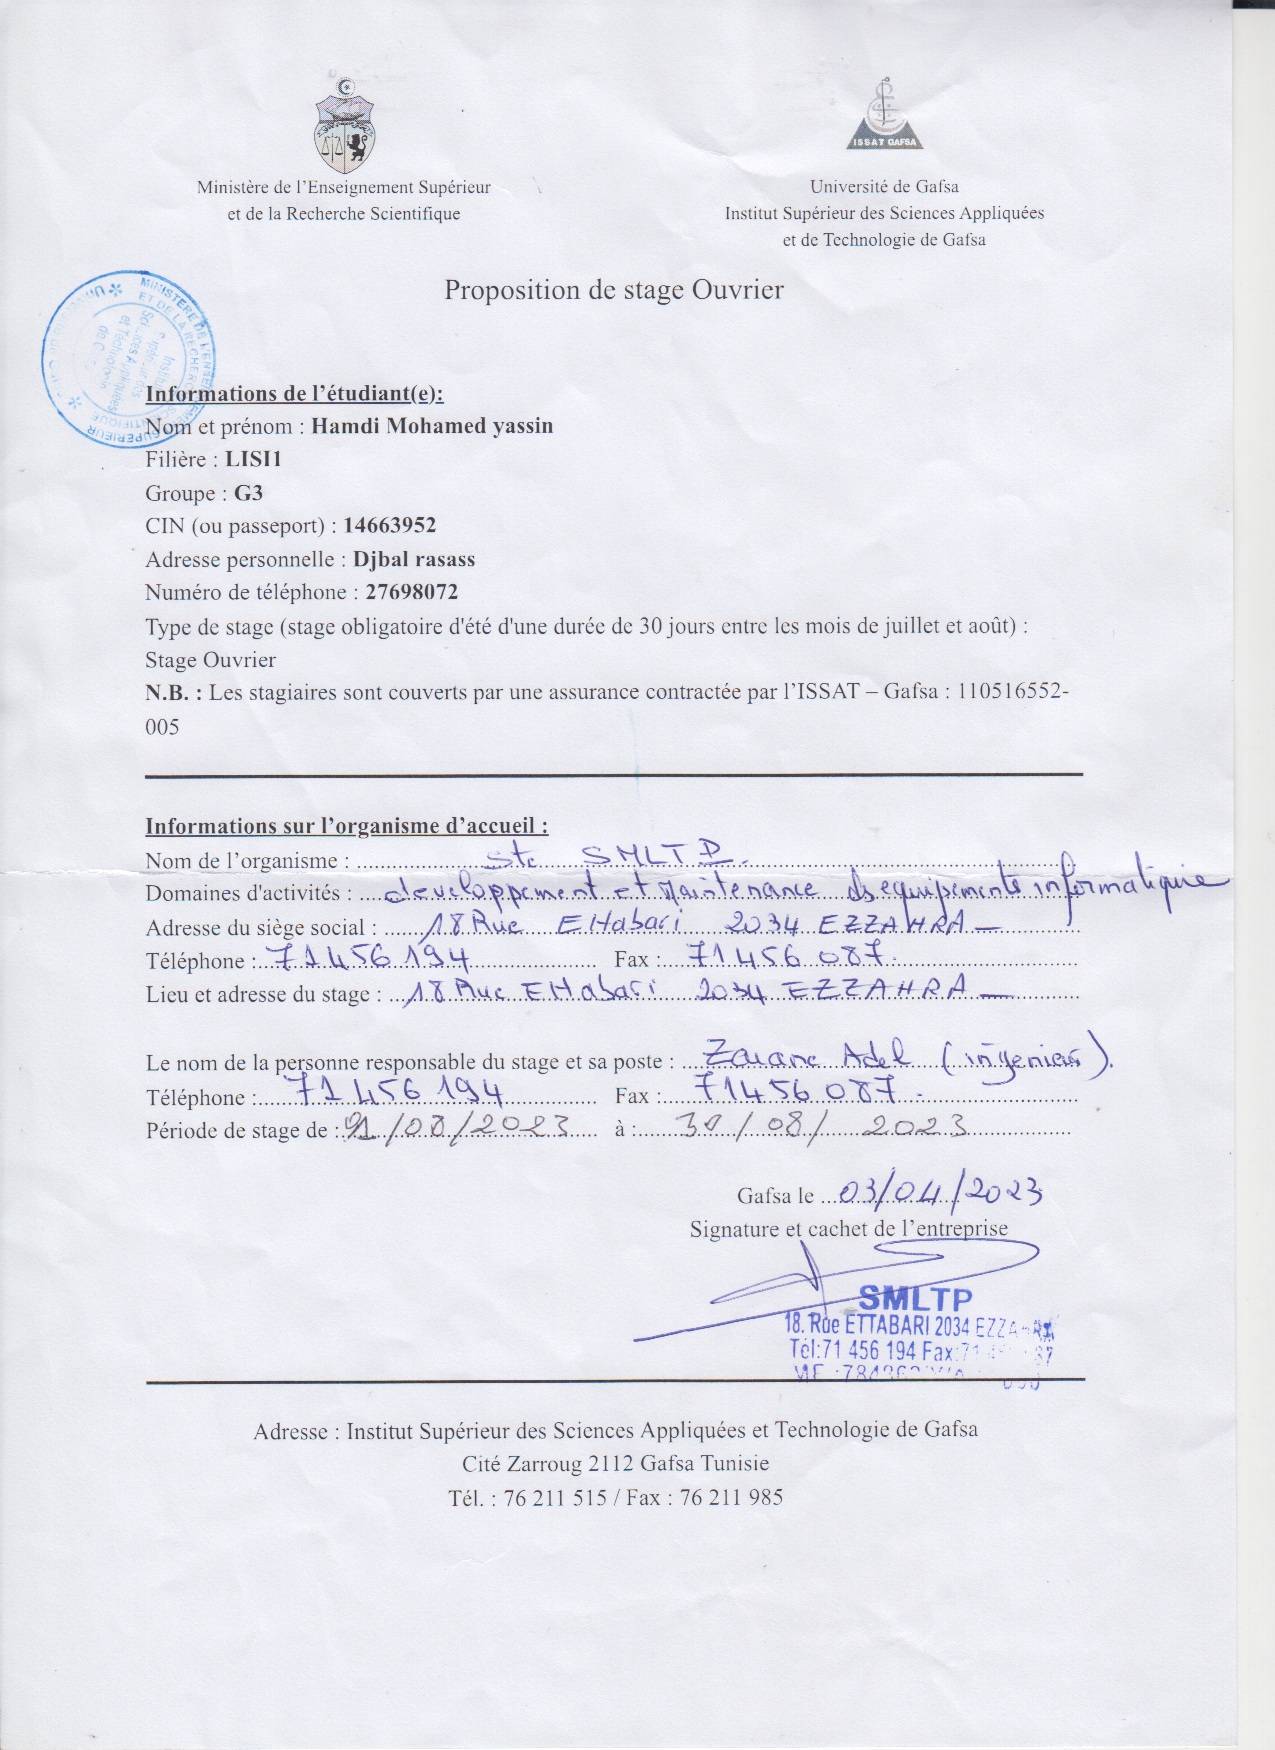 ISSAT GAFSA
Ministère de l'Enseignement Supérieur
et de la Recherche Scientifique
Université de Gafsa
Institut Supérieur des Sciences Appliquées
et de Technologie de Gafsa
Proposition de stage Ouvrier
MINISTERE DE L'ENSEIGNEMENT SUPERIEUR
ET DE LA RECHERCHE SCIENTIFIQUE
Informations de l'étudiant(e):
Nom et prénom : Hamdi Mohamed yassin
Filière : LISI1
Groupe : G3
CIN (ou passeport) : 14663952
Adresse personnelle : Djbal rasass
Numéro de téléphone : 27698072
Type de stage (stage obligatoire d'été d'une durée de 30 jours entre les mois de juillet et août) :
Stage Ouvrier
N.B. : Les stagiaires sont couverts par une assurance contractée par l'ISSAT – Gafsa : 110516552-
005
Informations sur l'organisme d'accueil :
Nom de l'organisme : Ste SMLTP
Domaines d'activités : developpement et Maintenance des equipements informatique
Adresse du siège social : 18 Rue EHabari 2034 EZZAHRA
Téléphone : 71 456 194 Fax : 71 456 087
Lieu et adresse du stage : 18 Rue EHabari 2034 EZZAHRA
Le nom de la personne responsable du stage et sa poste : Adel (ingenieur).
Téléphone : 71 456 194 Fax : 71 456 087
Période de stage de : /08/2023 à : 31/08/2023
Gafsa le 03/04/2023
Signature et cachet de l'entreprise
SMLTP
18. Rue ETTABARI 2034 EZZAHRA
Tél:71 456 194 Fax:71
Adresse : Institut Supérieur des Sciences Appliquées et Technologie de Gafsa
Cité Zarroug 2112 Gafsa Tunisie
Tél. : 76 211 515 / Fax : 76 211 985